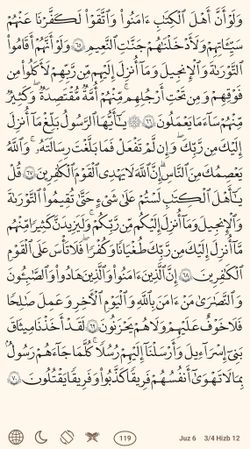 وَلَوْ أَنَّ أَهْلَ ٱلْكِتَٰبِ ءَامَنُوا۟ وَٱتَّقَوْا۟ لَكَفَّرْنَا عَنْهُمْ
سَيِّـَٔاتِهِمْ وَلَأَدْخَلْنَٰهُمْ جَنَّٰتِ ٱلنَّعِيمِ ۝٦٥ وَلَوْ أَنَّهُمْ أَقَامُوا۟
ٱلتَّوْرَىٰةَ وَٱلْإِنجِيلَ وَمَآ أُنزِلَ إِلَيْهِم مِّن رَّبِّهِمْ لَأَكَلُوا۟ مِن
فَوْقِهِمْ وَمِن تَحْتِ أَرْجُلِهِم ۚ مِّنْهُمْ أُمَّةٌ مُّقْتَصِدَةٌ ۖ وَكَثِيرٌ
مِّنْهُمْ سَآءَ مَا يَعْمَلُونَ ۝٦٦ ۞ يَٰٓأَيُّهَا ٱلرَّسُولُ بَلِّغْ مَآ أُنزِلَ
إِلَيْكَ مِن رَّبِّكَ ۖ وَإِن لَّمْ تَفْعَلْ فَمَا بَلَّغْتَ رِسَالَتَهُۥ ۚ وَٱللَّهُ
يَعْصِمُكَ مِنَ ٱلنَّاسِ ۗ إِنَّ ٱللَّهَ لَا يَهْدِى ٱلْقَوْمَ ٱلْكَٰفِرِينَ ۝٦٧ قُلْ
يَٰٓأَهْلَ ٱلْكِتَٰبِ لَسْتُمْ عَلَىٰ شَىْءٍ حَتَّىٰ تُقِيمُوا۟ ٱلتَّوْرَىٰةَ
وَٱلْإِنجِيلَ وَمَآ أُنزِلَ إِلَيْكُم مِّن رَّبِّكُمْ ۗ وَلَيَزِيدَنَّ كَثِيرًا مِّنْهُم
مَّآ أُنزِلَ إِلَيْكَ مِن رَّبِّكَ طُغْيَٰنًا وَكُفْرًا ۖ فَلَا تَأْسَ عَلَى ٱلْقَوْمِ
ٱلْكَٰفِرِينَ ۝٦٨ إِنَّ ٱلَّذِينَ ءَامَنُوا۟ وَٱلَّذِينَ هَادُوا۟ وَٱلصَّٰبِـُٔونَ
وَٱلنَّصَٰرَىٰ مَنْ ءَامَنَ بِٱللَّهِ وَٱلْيَوْمِ ٱلْـَٔاخِرِ وَعَمِلَ صَٰلِحًا
فَلَا خَوْفٌ عَلَيْهِمْ وَلَا هُمْ يَحْزَنُونَ ۝٦٩ لَقَدْ أَخَذْنَا مِيثَٰقَ
بَنِىٓ إِسْرَٰٓءِيلَ وَأَرْسَلْنَآ إِلَيْهِمْ رُسُلًا ۖ كُلَّمَا جَآءَهُمْ رَسُولٌۢ
بِمَا لَا تَهْوَىٰٓ أَنفُسُهُمْ فَرِيقًا كَذَّبُوا۟ وَفَرِيقًا يَقْتُلُونَ ۝٧٠
119 Juz 6 3/4 Hizb 12